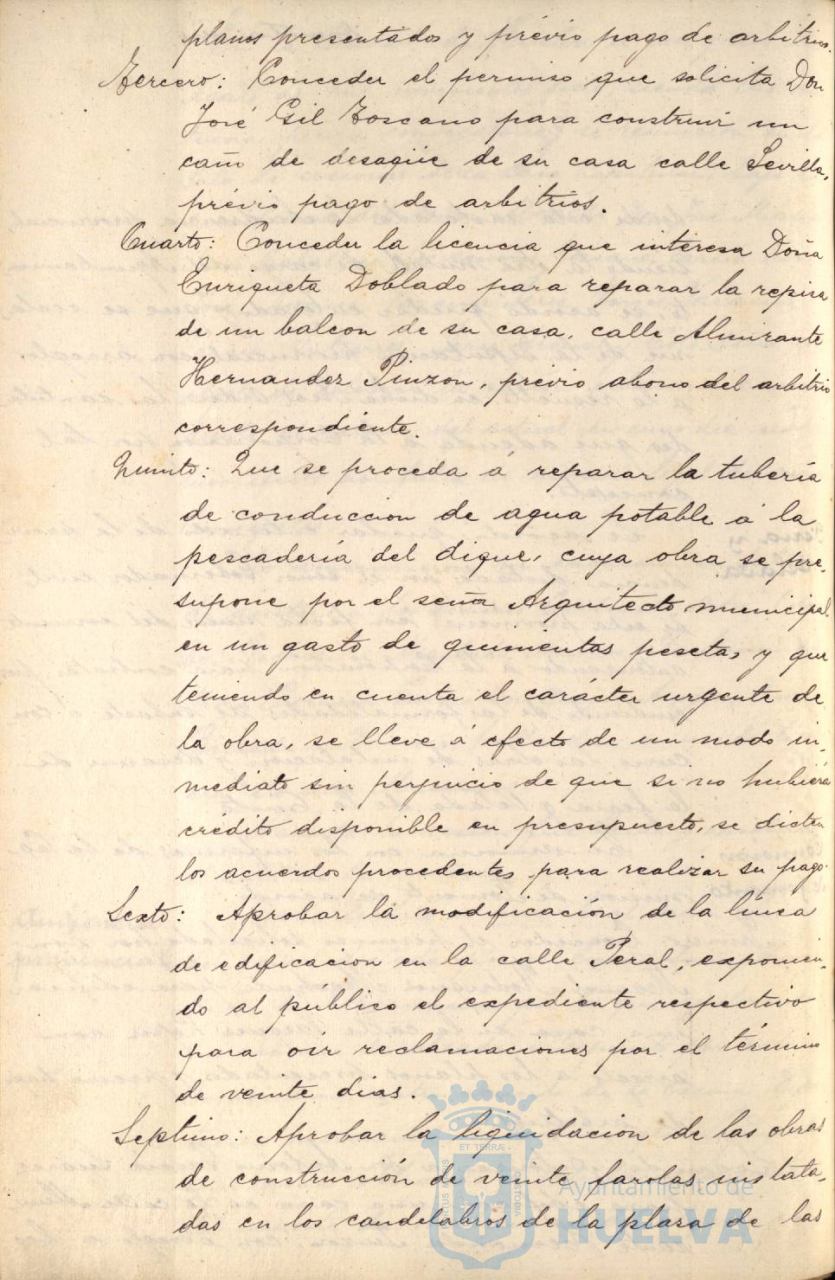 planos presentados y prévio pago de arbitrios.
Tercero: Conceder el permiso que solicita Don
José Gil Toscano para construir un
caño de desagüe de su casa calle Sevilla,
prévio pago de arbitrios.
Cuarto: Conceder la licencia que interesa Doña
Enriqueta Doblado para reparar la repisa
de un balcon de su casa, calle Almirante
Hernandez Pinzon, prévio abono del arbitrio
correspondiente.
Quinto: Que se proceda á reparar la tubería
de conduccion de agua potable á la
pescadería del dique, cuya obra se pre-
supone por el señor Arquitecto municipal
en un gasto de quinientas pesetas, y que
teniendo en cuenta el carácter urgente de
la obra, se lleve á efecto de un modo in-
mediato sin perjuicio de que si no hubiera
crédito disponible en presupuesto, se dicten
los acuerdos procedentes para realizar su pago.
Sexto: Aprobar la modificación de la línea
de edificacion en la calle Peral, exponien-
do al público el expediente respectivo
para oir reclamaciones por el término
de veinte dias.
Septimo: Aprobar la liquidacion de las obras
de construcción de veinte farolas insta​ta-
das en los candelabros de la plaza de las
ET TERRAE
Ayuntamiento de
HUELVA